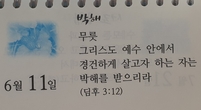 박해
무릇
그리스도 예수 안에서
경건하게 살고자 하는 자는
박해를 받으리라
(딤후 3:12)
6월 11일